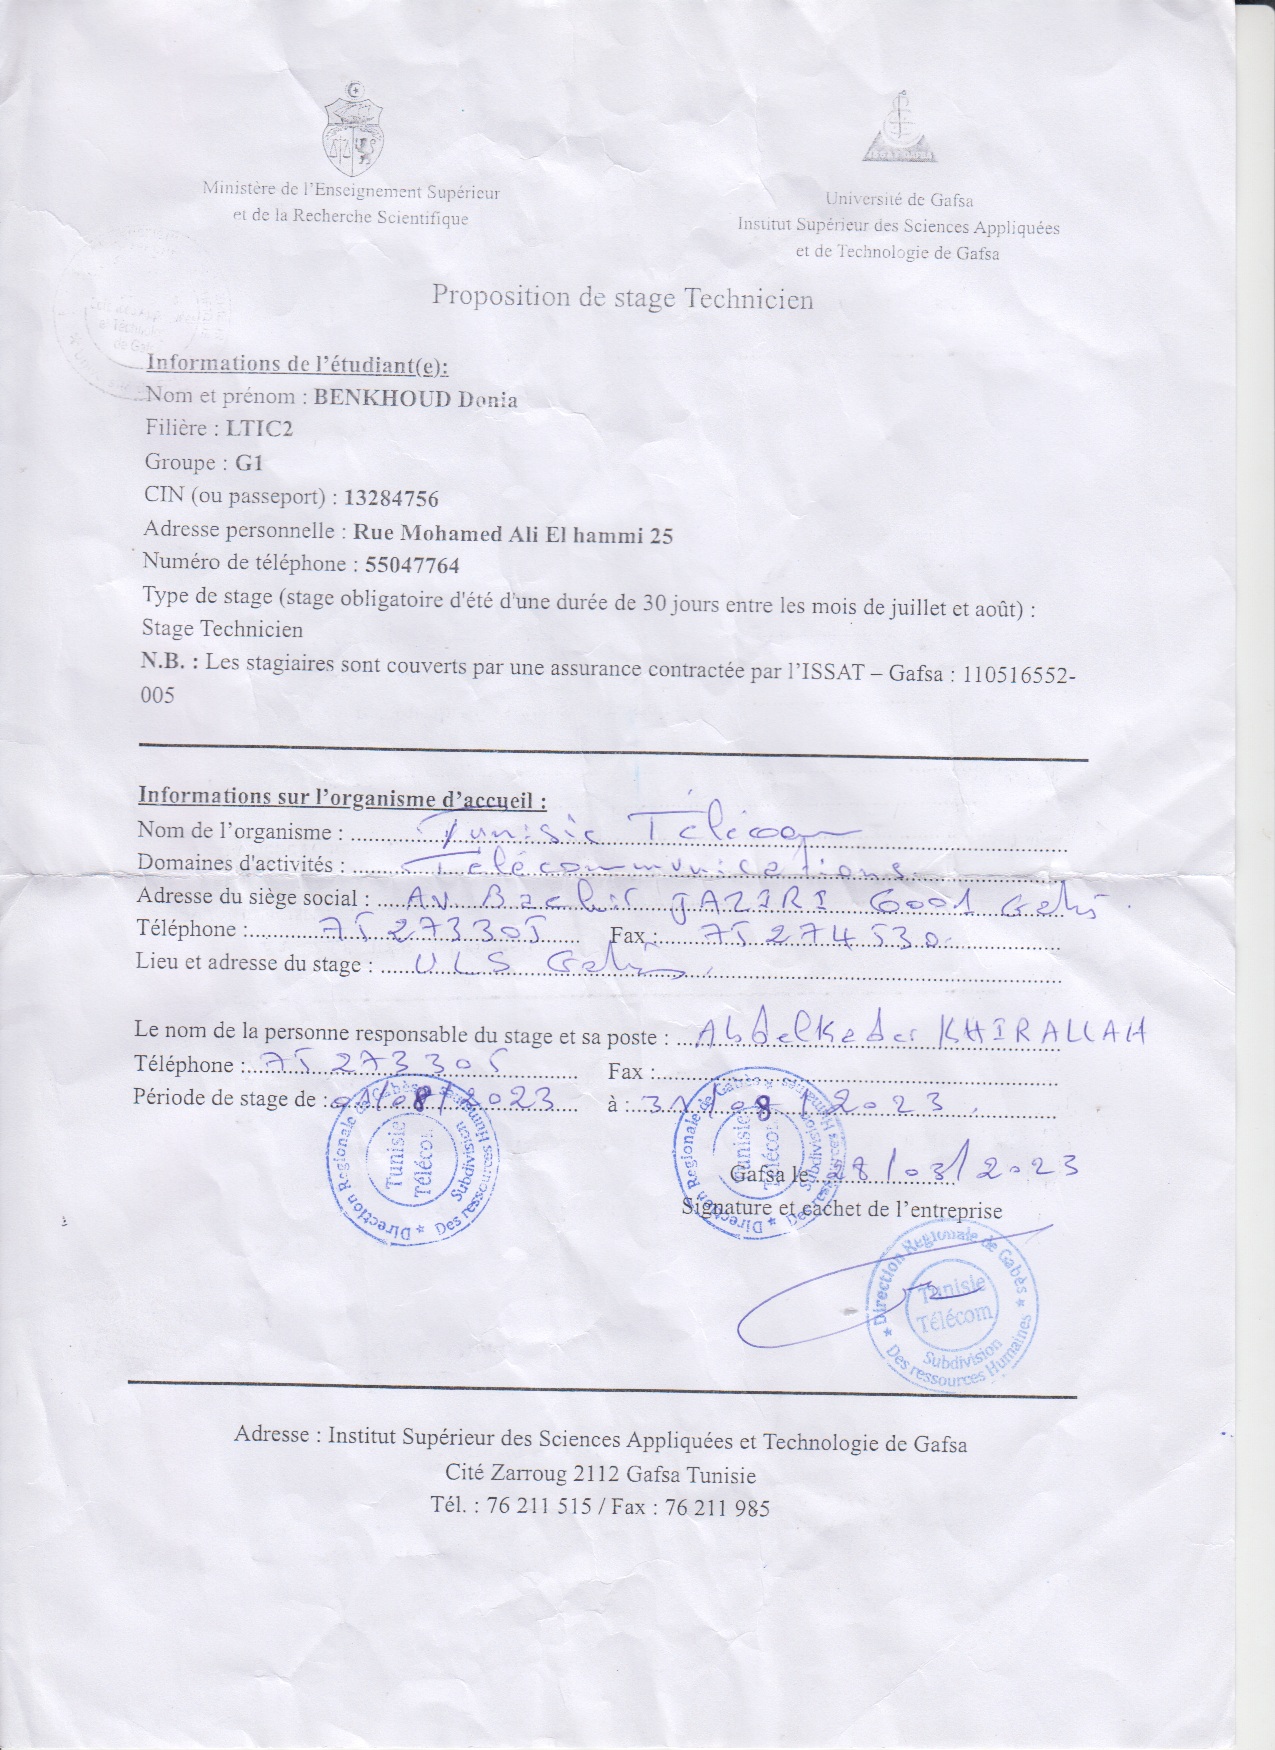 Ministère de l'Enseignement Supérieur
et de la Recherche Scientifique
Université de Gafsa
Institut Supérieur des Sciences Appliquées
et de Technologie de Gafsa
Proposition de stage Technicien
Informations de l'étudiant(e):
Nom et prénom : BENKHOUD Donia
Filière : LTIC2
Groupe : G1
CIN (ou passeport) : 13284756
Adresse personnelle : Rue Mohamed Ali El hammi 25
Numéro de téléphone : 55047764
Type de stage (stage obligatoire d'été d'une durée de 30 jours entre les mois de juillet et août) :
Stage Technicien
N.B. : Les stagiaires sont couverts par une assurance contractée par l'ISSAT – Gafsa : 110516552-
005
Informations sur l'organisme d'accueil :
Nom de l'organisme : Tunisie Télécom
Domaines d'activités : Télécommunications
Adresse du siège social : AV Bachir JAZIRI 6001 Gabès
Téléphone : 75 273 305 Fax : 75 274 530
Lieu et adresse du stage : ULS Gabès
Le nom de la personne responsable du stage et sa poste : Abdelkader KHIRALLAH
Téléphone : 75 273 305 Fax :
Période de stage de : 01/08/2023 à : 31/08/2023
Direction Regionale de Gabès * Des ressources Humaines *
Tunisie
Télécom
Subdivision
Direction Regionale de Gabès * Des ressources Humaines *
Tunisie
Télécom
Subdivision
Gafsa le 28/03/2023
Signature et cachet de l'entreprise
Direction Regionale de Gabès * Des ressources Humaines *
Tunisie
Télécom
Subdivision
Adresse : Institut Supérieur des Sciences Appliquées et Technologie de Gafsa
Cité Zarroug 2112 Gafsa Tunisie
Tél. : 76 211 515 / Fax : 76 211 985